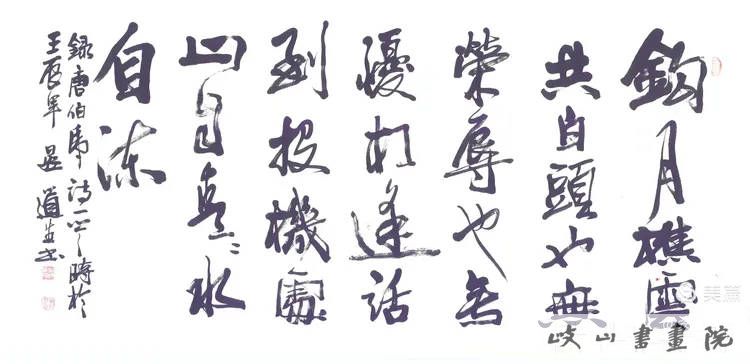 釣月樵雲
共白頭也無
榮辱也無
憂相逢話
到投機處
山自青々水
自流
録唐伯虎詩一首時於
壬辰年 道 書
美篇
岐山書畫院